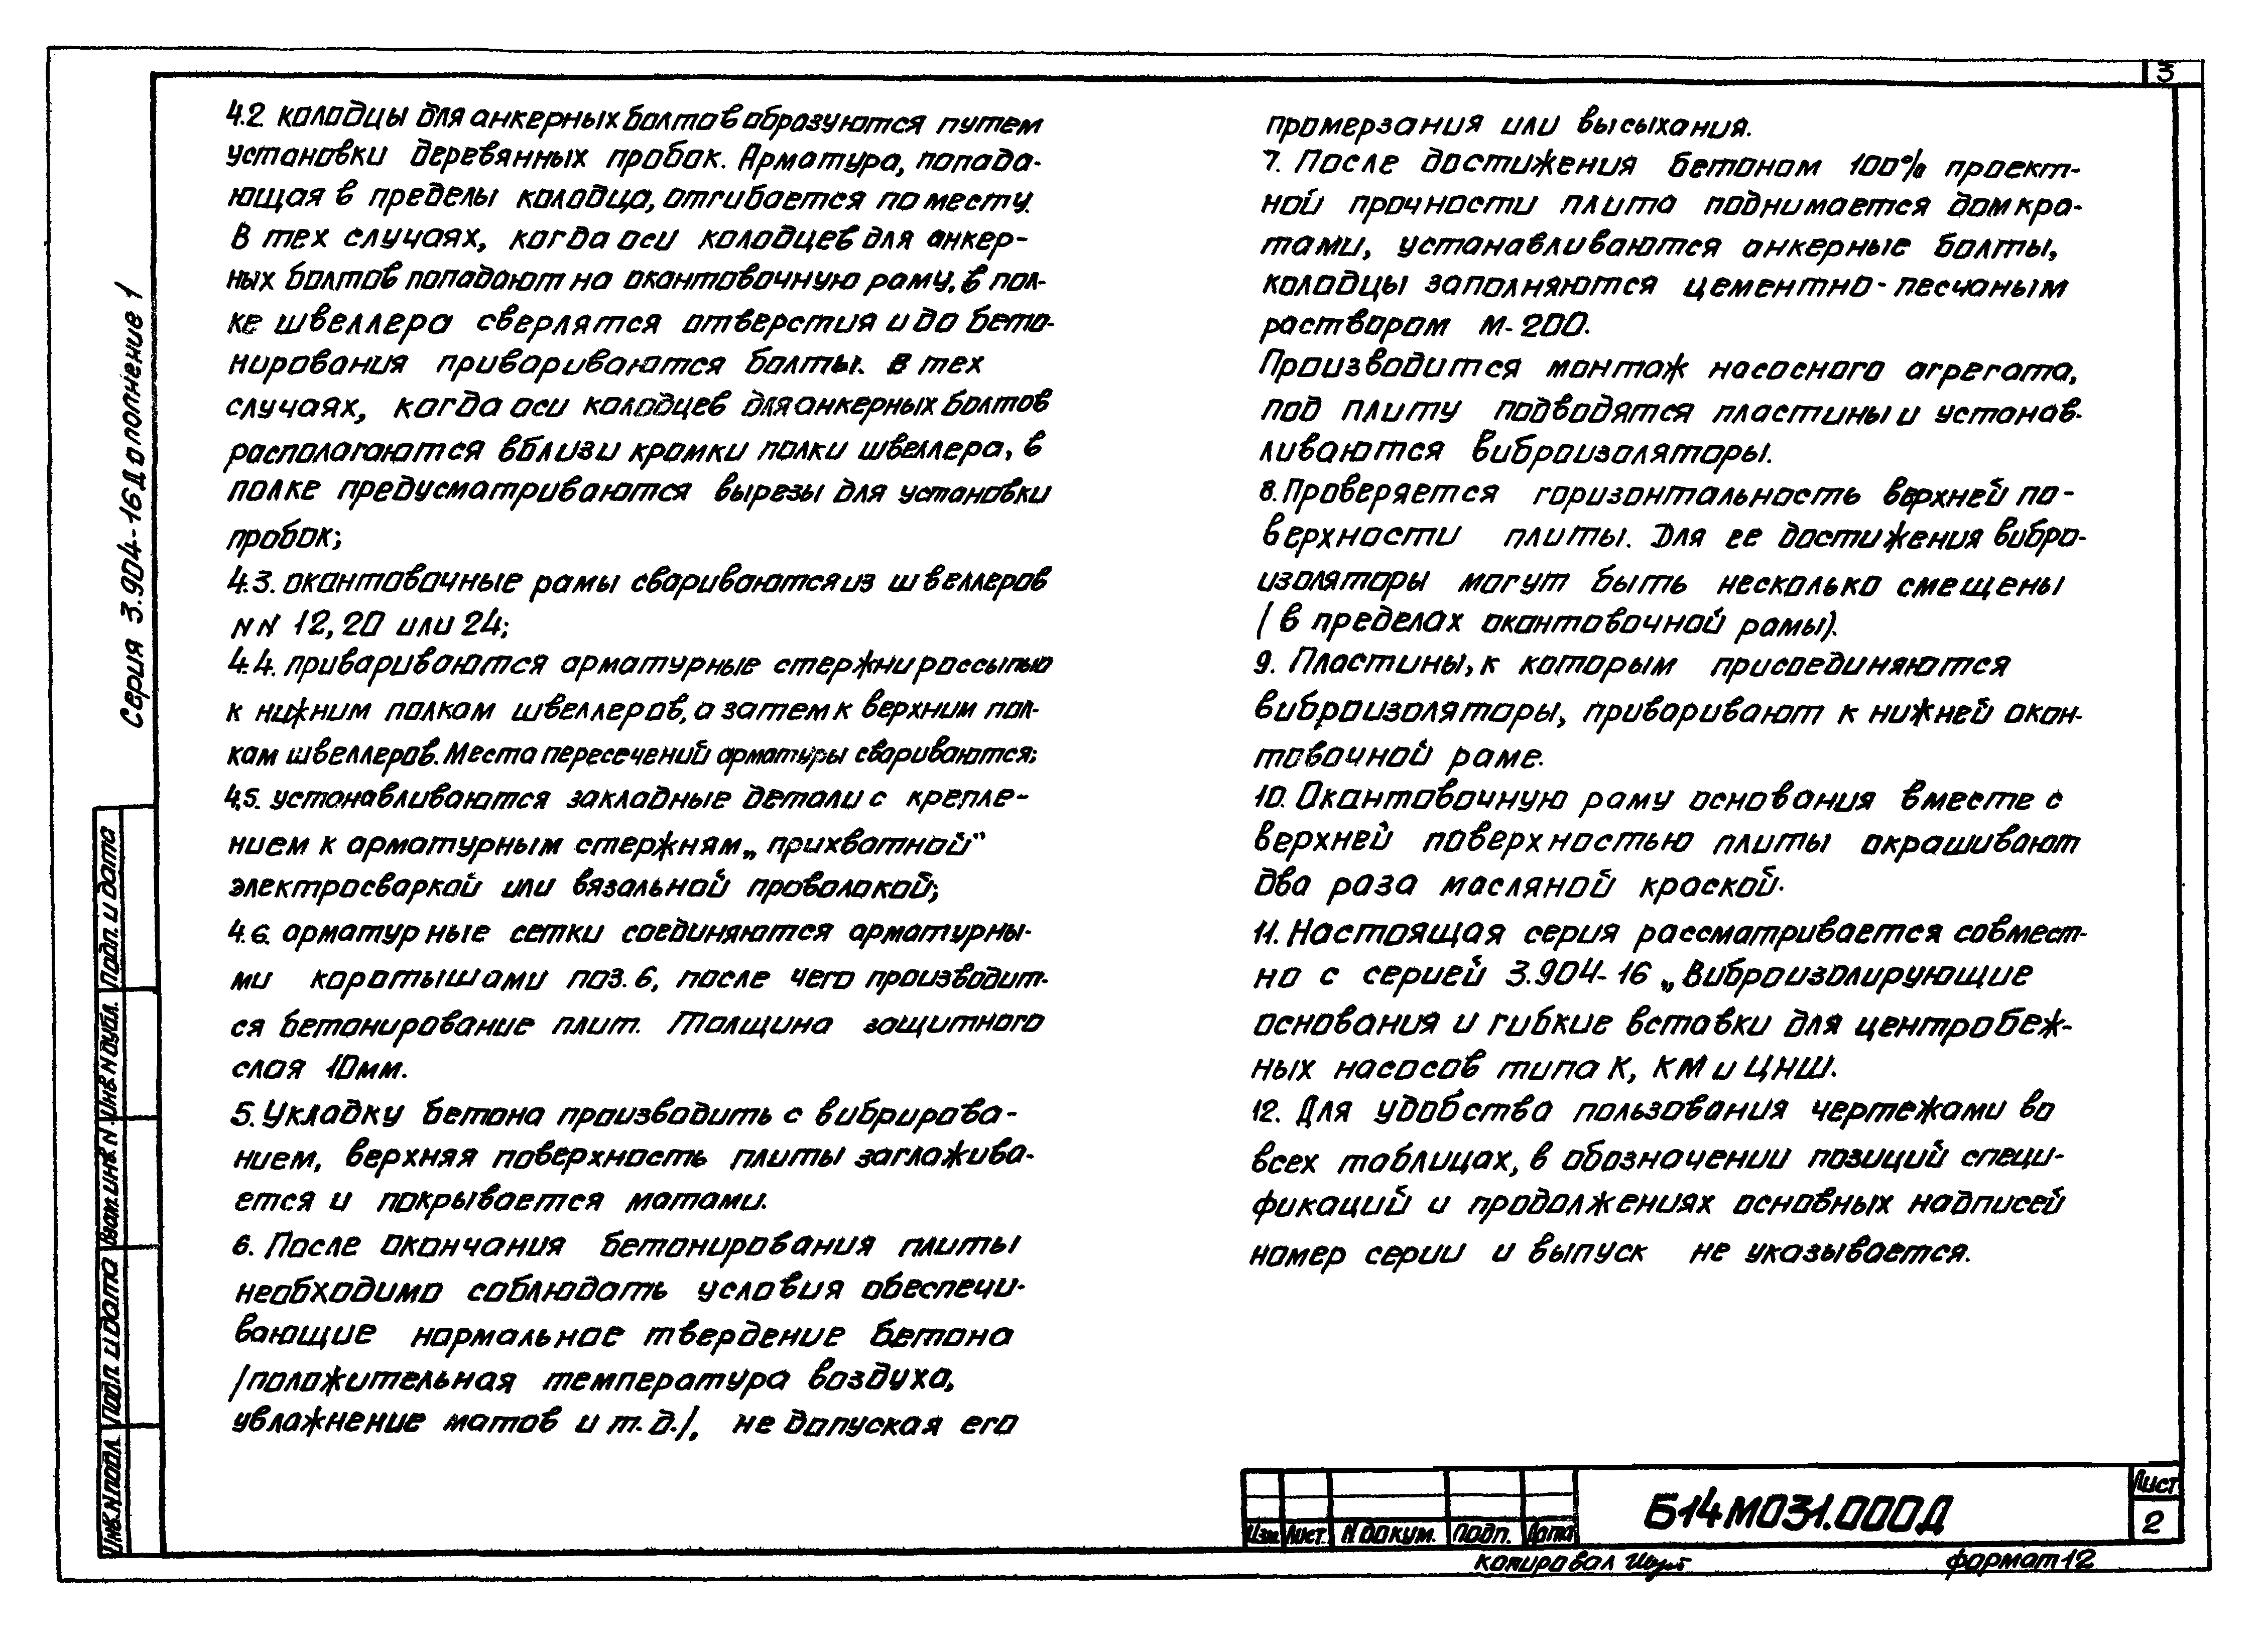 3
4.2. колодцы для анкерных болтов образуются путем
установки деревянных пробок. Арматура, попада-
ющая в пределы колодца, отгибается по месту.
В тех случаях, когда оси колодцев для анкер-
ных болтов попадают на окантовочную раму, в пол-
ке швеллера сверлятся отверстия и до бето-
нирования привариваются болты. В тех
случаях, когда оси колодцев для анкерных болтов
располагаются вблизи кромки полки швеллера, в
полке предусматриваются вырезы для установки
пробок;
4.3. окантовочные рамы свариваются из швеллеров
NN 12, 20 или 24;
4.4. привариваются арматурные стержни россыпью
к нижним полкам швеллеров, а затем к верхним пол-
кам швеллеров. Места пересечений арматуры свариваются;
4.5. устанавливаются закладные детали с крепле-
нием к арматурным стержням „прихваткой"
электросваркой или вязальной проволокой;
4.6. арматурные сетки соединяются арматурны-
ми коротышами поз. 6, после чего производит-
ся бетонирование плит. Толщина защитного
слоя 10мм.
5. Укладку бетона производить с вибрирова-
нием, верхняя поверхность плиты заглажива-
ется и покрывается матами.
6. После окончания бетонирования плиты
необходимо соблюдать условия обеспечи-
вающие нормальное твердение бетона
/положительная температура воздуха,
увлажнение матов и т.д./, не допуская его
промерзания или высыхания.
7. После достижения бетоном 100% проект-
ной прочности плита поднимается домкра-
тами, устанавливаются анкерные болты,
колодцы заполняются цементно-песчаным
раствором М-200.
Производится монтаж насосного агрегата,
под плиту подводятся пластины и устанав-
ливаются виброизоляторы.
8. Проверяется горизонтальность верхней по-
верхности плиты. Для ее достижения вибро-
изоляторы могут быть несколько смещены
/в пределах окантовочной рамы).
9. Пластины, к которым присоединяются
виброизоляторы, приваривают к нижней окон-
товочной раме.
10. Окантовочную раму основания вместе с
верхней поверхностью плиты окрашивают
два раза масляной краской.
11. Настоящая серия рассматривается совмест-
но с серией 3.904-16 „Виброизолирующие
основания и гибкие вставки для центробеж-
ных насосов типа К, КМ и ЦНШ.
12. Для удобства пользования чертежами во
всех таблицах, в обозначении позиций специ-
фикаций и продолжениях основных надписей
номер серии и выпуск не указывается.
Серия 3.904-16 Дополнение 1
Подп. и дата
Инв. N дубл.
Взам. инв. N
Подп. и дата
Инв. N подл.
Изм. Лист N докум. Подп. Дата
Б14М031.000Д
Лист
2
копировал
формат 12